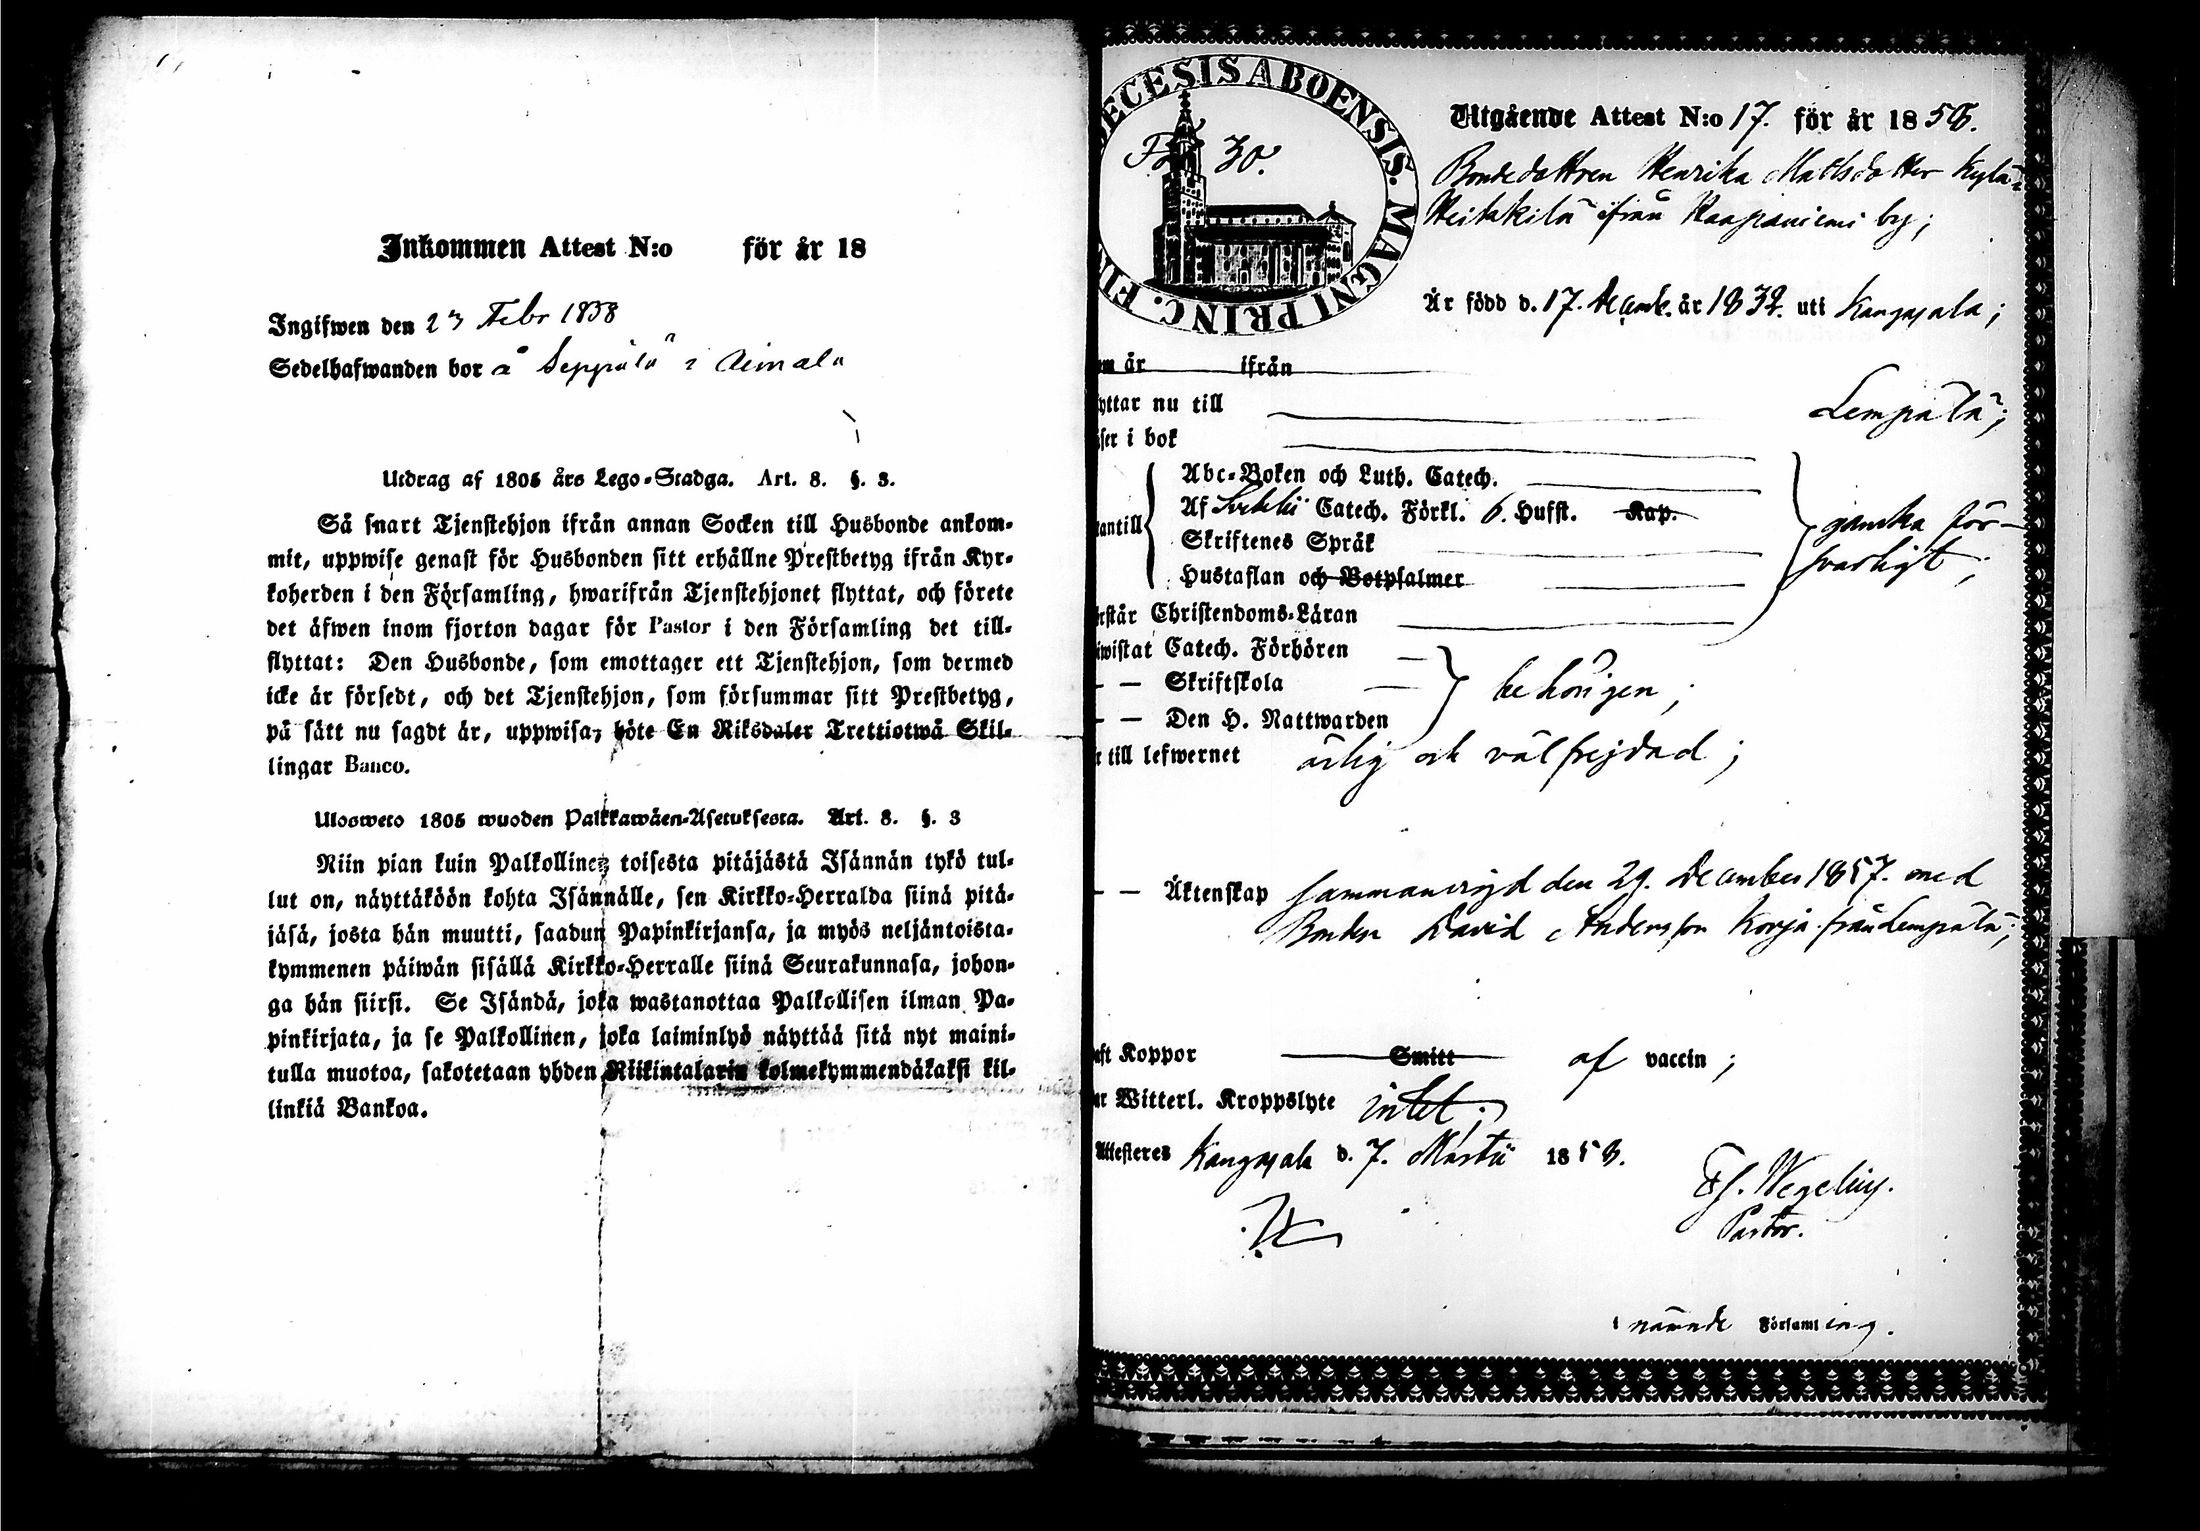 Inkommen Attest N:o för år 18
Ingifwen den 23 Febr 1838
Sedelhafwanden bor å Seppälä i Aimala
Utdrag af 1805 års Lego-Stadga. Art. 8. §. 3.
Så snart Tjenstehjon ifrån annan Socken till Husbonde ankom-
mit, uppwise genast för Husbonden sitt erhållne Prestbetyg ifrån Kyr-
koherden i den Församling, hwarifrån Tjenstehjonet flyttat, och förete
det äfwen inom fjorton dagar för Pastor i den Församling det till-
flyttat: Den Husbonde, som emottager ett Tjenstehjon, som dermed
icke är försedt, och det Tjenstehjon, som försummar sitt Prestbetyg,
på sätt nu sagdt är, uppwisa, böte En Riksdaler Trettiotwå Skil-
lingar Banco.
Uloswero 1805 wuoden Palkkawäen-Asetuksesta. Art. 8. §. 3
Niin pian kuin Palkollinen toisesta pitäjästä Isännän tykö tul-
lut on, näyttäköön kohta Isännälle, sen Kirkko-Herralda siinä pitä-
jäsä, josta hän muutti, saadun Papinkirjansa, ja myös neljäntoista-
kymmenen päiwän sisällä Kirkko-Herralle siinä Seurakunnasa, johon-
ga hän siirsi. Se Isändä, joka wastanottaa Palkollisen ilman Pa-
pinkirjata, ja se Palkollinen, joka laiminlyö näyttää sitä nyt maini-
tulla muotoa, sakotetaan yhden Riikintalarin kolmekymmendäkaksi kil-
linkiä Bankoa.
ECESIS ABOENSIS. MAGNI PRINC. FI
30.
Utgående Attest N:o 17. för år 1858.
Bondedottren Henrika Mattsdotter Kylä-
Heikkilä ifrån Haapaniemi by;
Är född d. 17. Decembr. år 1832. uti Kangasala;
om år ifrån
yttar nu till Lempälä;
äser i bok
Abc-Boken och Luth. Catech.
antill Af Svebelii Catech. Förkl. 6. Hufst. Kap. ganska för-
Skriftenes Språk
Hustaflan och Botpsalmer svarligt;
rstår Christendoms-Läran
iwistat Catech. Förhören
— — Skriftskola behörigen;
— — Den H. Nattwarden
r till lefwernet ärlig och välfrejdad;
— — Äktenskap sammanvigd den 29. December 1857. med
Bonden David Andersson Korja från Lempälä;
aft Koppor Smitt af vaccin;
ar Witterl. Kroppslyte intet;
Attesteres Kangasala d. 7. Martii 1858.
Wegelius.
Pastor.
i nämnde Församling.